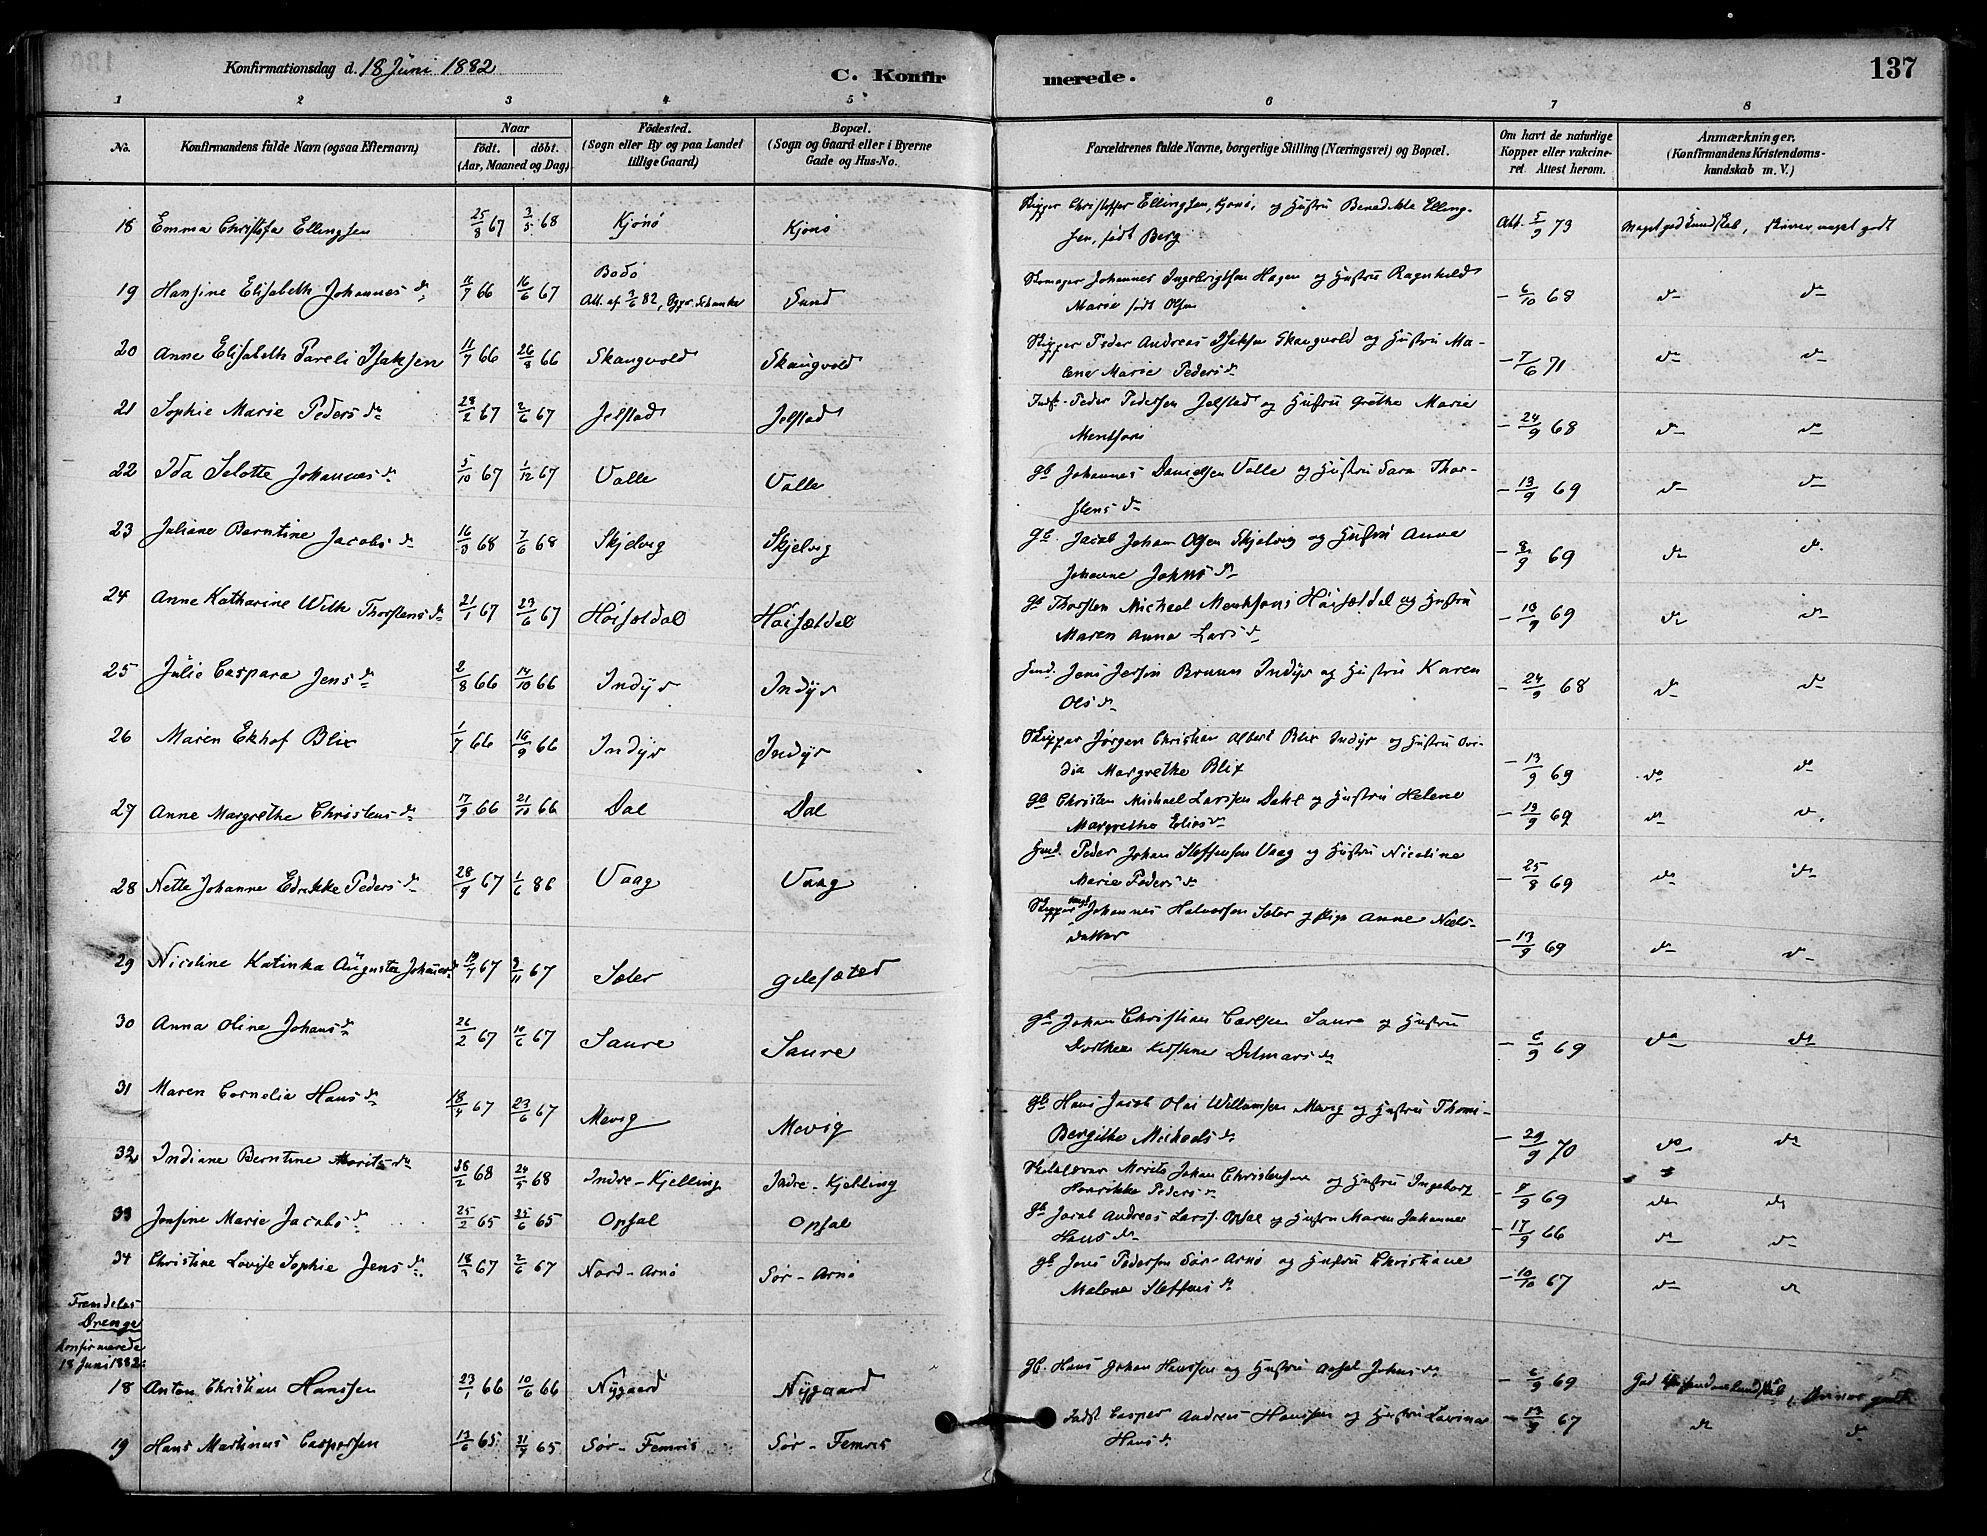 Konfirmationsdag d. 18 Juni 1882
C. Konfirmerede.
137
1 2 3 4 5 6 7 8
No.
Konfirmandens fulde Navn (ogsaa Efternavn)
Naar
født. døbt.
(Aar, Maaned og Dag)
Födested.
(Sogn eller By og paa Landet
tillige Gaard)
Bopæl.
(Sogn og Gaard eller i Byerne
Gade og Hus-No.
Forældrenes fulde Navne, borgerlige Stilling (Næringsvei) og Bopæl.
Om havt de naturlige
Kopper eller vakcine-
ret. Attest herom.
Anmærkninger.
(Konfirmandens Kristendoms-
kundskab m. V.)
18 Emma Christofa Ellingsen 25/8 67 3/5 68 Kjønø Kjønø Skipper Christoffer Ellingsen, Kjønø, og Hustru Benedikta Elling-
sen, født Berg Att. 5/9 73 Meget god Kundskab, skriver meget godt
19 Hansine Elisabeth Johannesdr 11/7 66 16/6 67 Bodø
Att. af 3/6 82, Sund Johannes Ingebrigtsen Hagen og Hustru Ragnhild
Marie født Olsen - 6/10 68 do do
20 Anne Elisabeth Pareli Isaksen 11/7 66 26/8 66 Skaugvold Skaugvold Skipper Peder Andreas Isaksen Skaugvold og Hustru Ma-
lene Marie Pedersdr - 7/6 71 do do
21 Sophie Marie Pedersdr 28/2 67 2/6 67 Jelstad Jelstad Indst. Peder Pedersen Jelstad og Hustru Grethe Marie
Mentsdr - 24/9 68 do do
22 Ida Selotte Johannesdr 5/10 67 1/12 67 Valle Valle gb Johannes Danielsen Valle og Hustru Sara Thor-
stensdr - 13/9 69 do do
23 Juliane Berntine Jacobsdr 16/3 68 7/6 68 Skjelvig Skjelvig gb. Jacob Johan Olsen Skjelvig og Hustru Anne
Johanne Johnsdr - 8/9 69 do do
24 Anne Katharine Wilh Thorstensdr 21/1 67 23/6 67 Høisætdal Høisætdal gb Thorsten Michael Mentsen Høisætdal og Hustru
Maren Anna Larsdr - 13/9 69 do do
25 Julie Caspara Jensdr 2/8 66 14/10 66 Indyr Indyr Jens Jersin Bruun Indyr og Hustru Karen
Olsdr - 24/9 68 do do
26 Maren Ekhof Blix 1/7 66 16/9 66 Indyr Indyr Skipper Jørgen Christian Albert Blix Indyr og Hustru Ovi-
dia Margrethe Blix - 13/9 69 do do
27 Anne Margrethe Christensdr 17/9 66 21/10 66 Dal Dal gb Christen Michael Larssen Dahl og Hustru Helene
Margrethe Eliasdr - 13/9 69 do do
28 Nette Johanne Edrikke Pedersdr 28/9 67 1/6 86 Vaag Vaag Peder Johan Steffensen Vaag og Hustru Nicoline
Marie Pedersdr - 25/8 69 do do
29 Nicoline Katinka Augusta Johannesdr 19/7 67 3/11 67 Sæter Gilesæted Skipper Johannes Halvorsen Sæter og Pige Anne Niels-
datter - 13/9 69 do do
30 Anna Oline Johansdr 26/2 67 10/6 67 Saure Saure gb Johan Christian Carlsen Saure og Hustru
Dorthea Kistine Detmarsdr - 6/9 69 do do
31 Maren Cornelia Hansdr 18/4 67 23/6 67 Mevig Mevig gb Hans Jacob Olai Willumsen Mevig og Hustru Thomi-
Bergithe Michaelsdr - 29/9 70 do do
32 Indiane Berntine Moritsdr 28/2 68 24/5 68 Indre-Kjelling Indre-Kjelling Skolelærer Morits Johan Christensen og Hustru Ingeborg
Henrikke Pedersdr - 8/9 69 do do
33 Josfine Marie Jacobsdr 25/2 65 25/6 65 Opsal Opsal gb Jacob Andreas Larss. Opsal og Hustru Maren Johanne
Hansdr - 17/9 66 do do
34 Christine Lovise Sophie Jensdr 18/3 67 2/6 67 Nord-Arnø Sør-Arnø gb Jens Pedersen Sør-Arnø og Hustru Christiane
Malena Steffensdr - 10/10 67 do do
Fremdeles
Drenge
konfirmerede
18 Juni 1882:
18 Anton Christian Hanssen 23/1 66 10/6 66 Nygaard Nygaard gb. Hans Johan Hanssen og Hustru Johnsdr - 6/9 69 God Kristendomskundskab, skriver godt
19 Hans Martinus Caspersen 13/6 65 31/7 65 Sør-Femris Sør-Femris Indst Casper Andreas Hanssen og Hustru Lovina
Hansdr - 13/9 67 do do